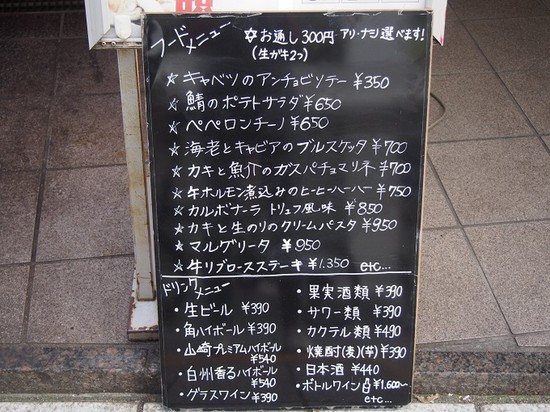 フードメニュー
☆お通し300円 アリ・ナシ選べます!
(生ガキ2つ)
☆キャベツのアンチョビソテー ¥350
☆鯖のポテトサラダ ¥650
☆ペペロンチーノ ¥650
☆海老とキャビアのブルスケッタ ¥700
☆カキと魚介のガスパチョマリネ ¥700
☆牛ホルモン煮込みのヒーヒーハーハー ¥750
☆カルボナーラ トリュフ風味 ¥850
☆カキと生のりのクリームパスタ ¥950
☆マルゲリータ ¥950
☆牛リブロースステーキ ¥1,350 etc...
ドリンク
メニュー
・生ビール ¥390
・角ハイボール ¥390
・山崎プレミアムハイボール
¥540
・白州香るハイボール
¥540
・グラスワイン ¥390
・果実酒類 ¥390
・サワー類 ¥390
・カクテル類 ¥490
・焼酎(麦)(芋) ¥390
・日本酒 ¥440
・ボトルワイン 白 ¥1,600~
etc...